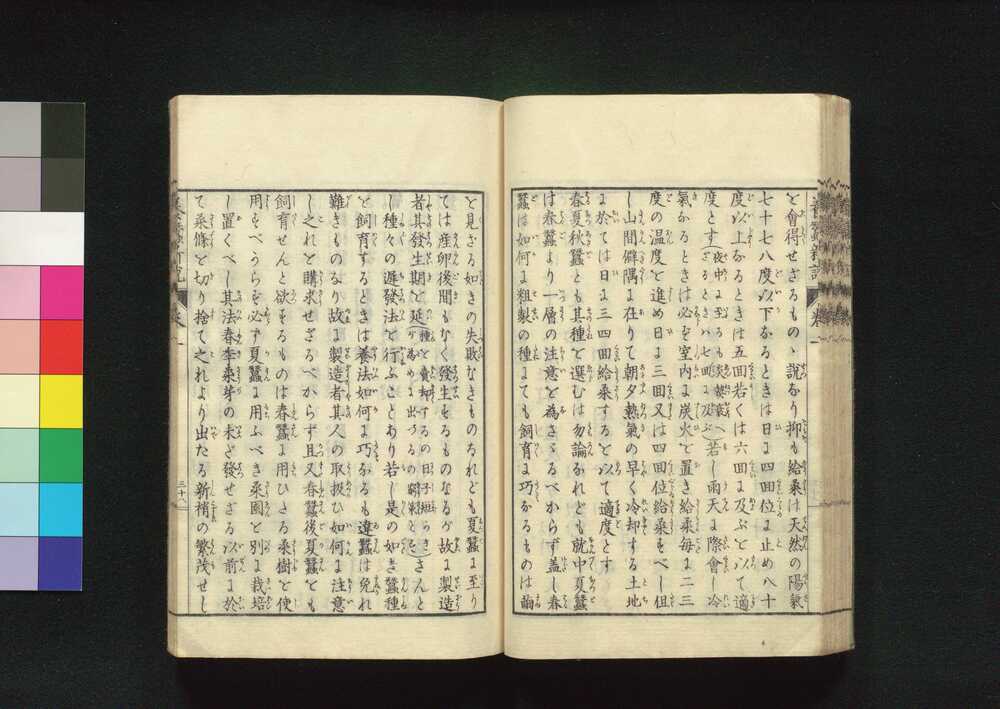 を會得せざるものゝ說なり抑も給桑は天然の陽氣
七十七八度以下なるときは日ま四回位ま止め八十
度以上なるときは五回若くは六回ま及ぶを以て適
度とす若し雨天ま際會し冷
氣なるときは必ず室内ま炭火を置き給桑毎ま二三
度の温度を進め日ま三回又は四回位給桑すべし但
し山間僻隅ま在りて朝夕熱氣の早く冷却する土地
ま於ては日ま三四回給桑するを以て適度とす
春夏秋蠶とも其種を選むは勿論なれども就中夏蠶
は春蠶より一層の注意を為さゞるべからず盖し春
蠶は如何ま粗製の種まても飼育ま巧なるものは繭
を見ざる如きの失敗なきものなれども夏蠶ま至り
ては産卵後間もなく發生するものなるが故ま製造
者其發生期を延さんと
し種々の遲發法を行ふことあり若し是の如き蠶種
を飼育するときは養法如何ま巧なるも違蠶は免れ
難きものなり故ま製造者其人の取扱ひ如何ま注意
し之れを購求せざるべからず且又春蠶後夏蠶をも
飼育せんと欲するものは春蠶ま用ひさる桑樹を使
用すべうらず必ず夏蠶ま用ふべき桑園を別ま栽培
し置くべし其法春季桑芽の未だ發せざる以前ま於
て桑條を切り捨て之れより出たる新梢の繁茂せし
三十八